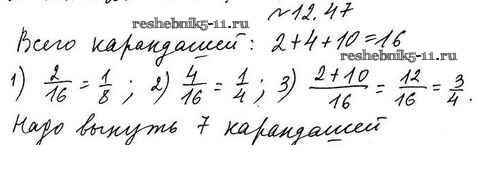 №12.47
reshebnik5-11.ru
Всего карандашей: 2+4+10=16
reshebnik5-11.ru
1) 2/16 = 1/8 ; 2) 4/16 = 1/4 ; 3) (2+10)/16 = 12/16 = 3/4.
Надо вынуть 7 карандашей